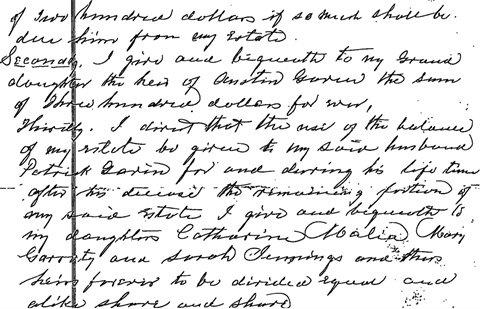 of Two hundred dollars if so much shall be
due him from my Estate.
Secondly, I give and bequeath to my Grand
daughter the heir of Austin Garin the sum
of Three hundred dollars for ever,
Thirdly. I direct that the use of the balance
of my estate be given to my said husband
Patrick Garin for and during his life time
after his decease the remaining portion of
my said estate I give and bequeath to
my daughters Catharine Malia Mary
Garrity and Sarah Jennings and thir
heirs forever to be divided equal and
alike share and share